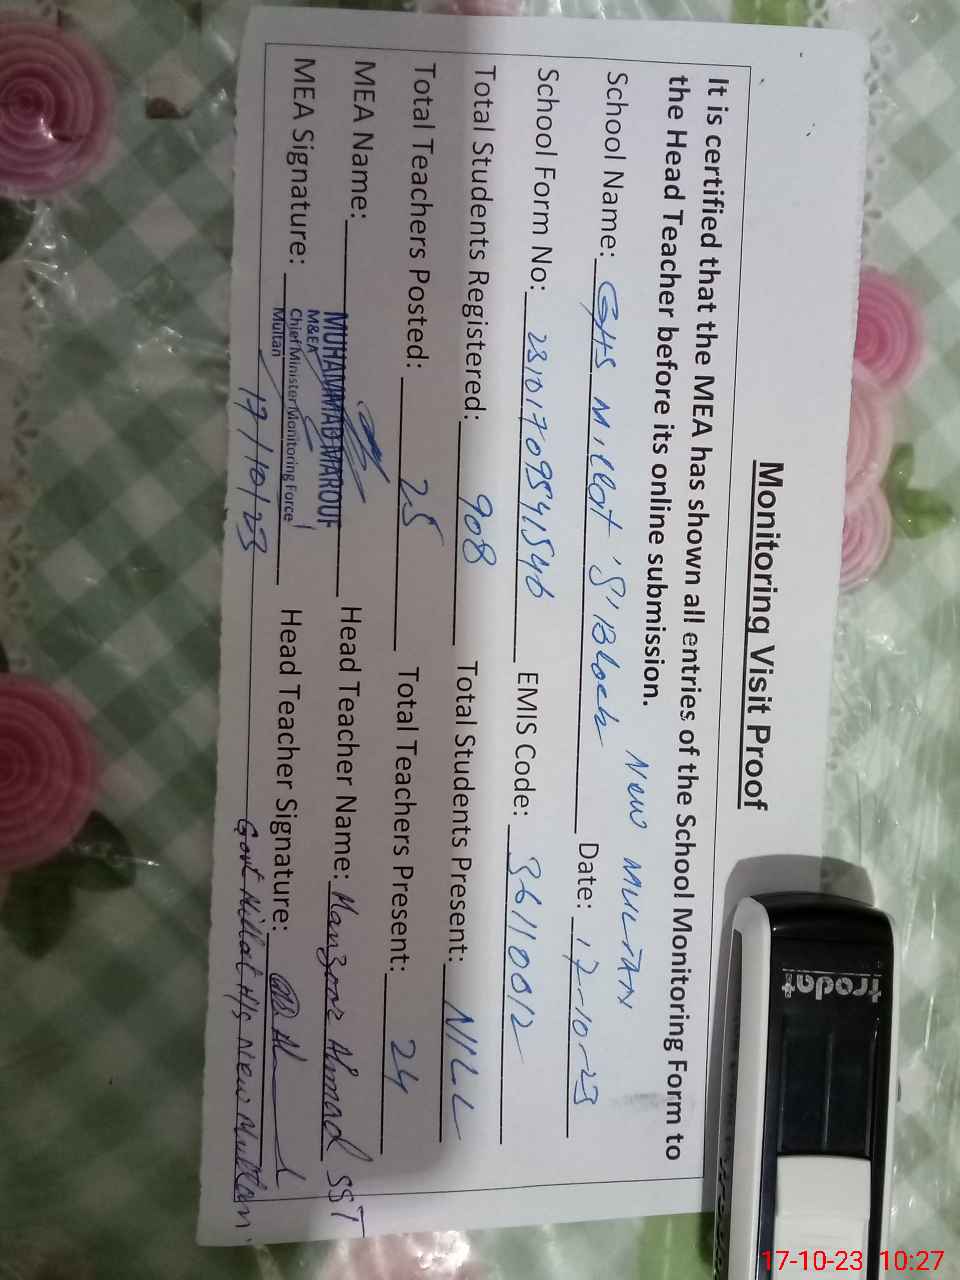 Monitoring Visit Proof
It is certified that the MEA has shown all entries of the School Monitoring Form to
the Head Teacher before its online submission.
New MULTAN
School Name: GHS Millat 'S' Block Date: 17-10-23
School Form No: 23101709541546 EMIS Code: 36110012
Total Students Registered: 908 Total Students Present: NILL
Total Teachers Posted: 25 Total Teachers Present: 24
MEA Name: MUHAMMAD MAROUF Head Teacher Name: Manzoor Ahmad SST
M&EA
Chief Minister Monitoring Force
Multan
MEA Signature: Head Teacher Signature:
17/10/23
Govt Millat H/S New Multan.
trodat
17-10-23 10:27